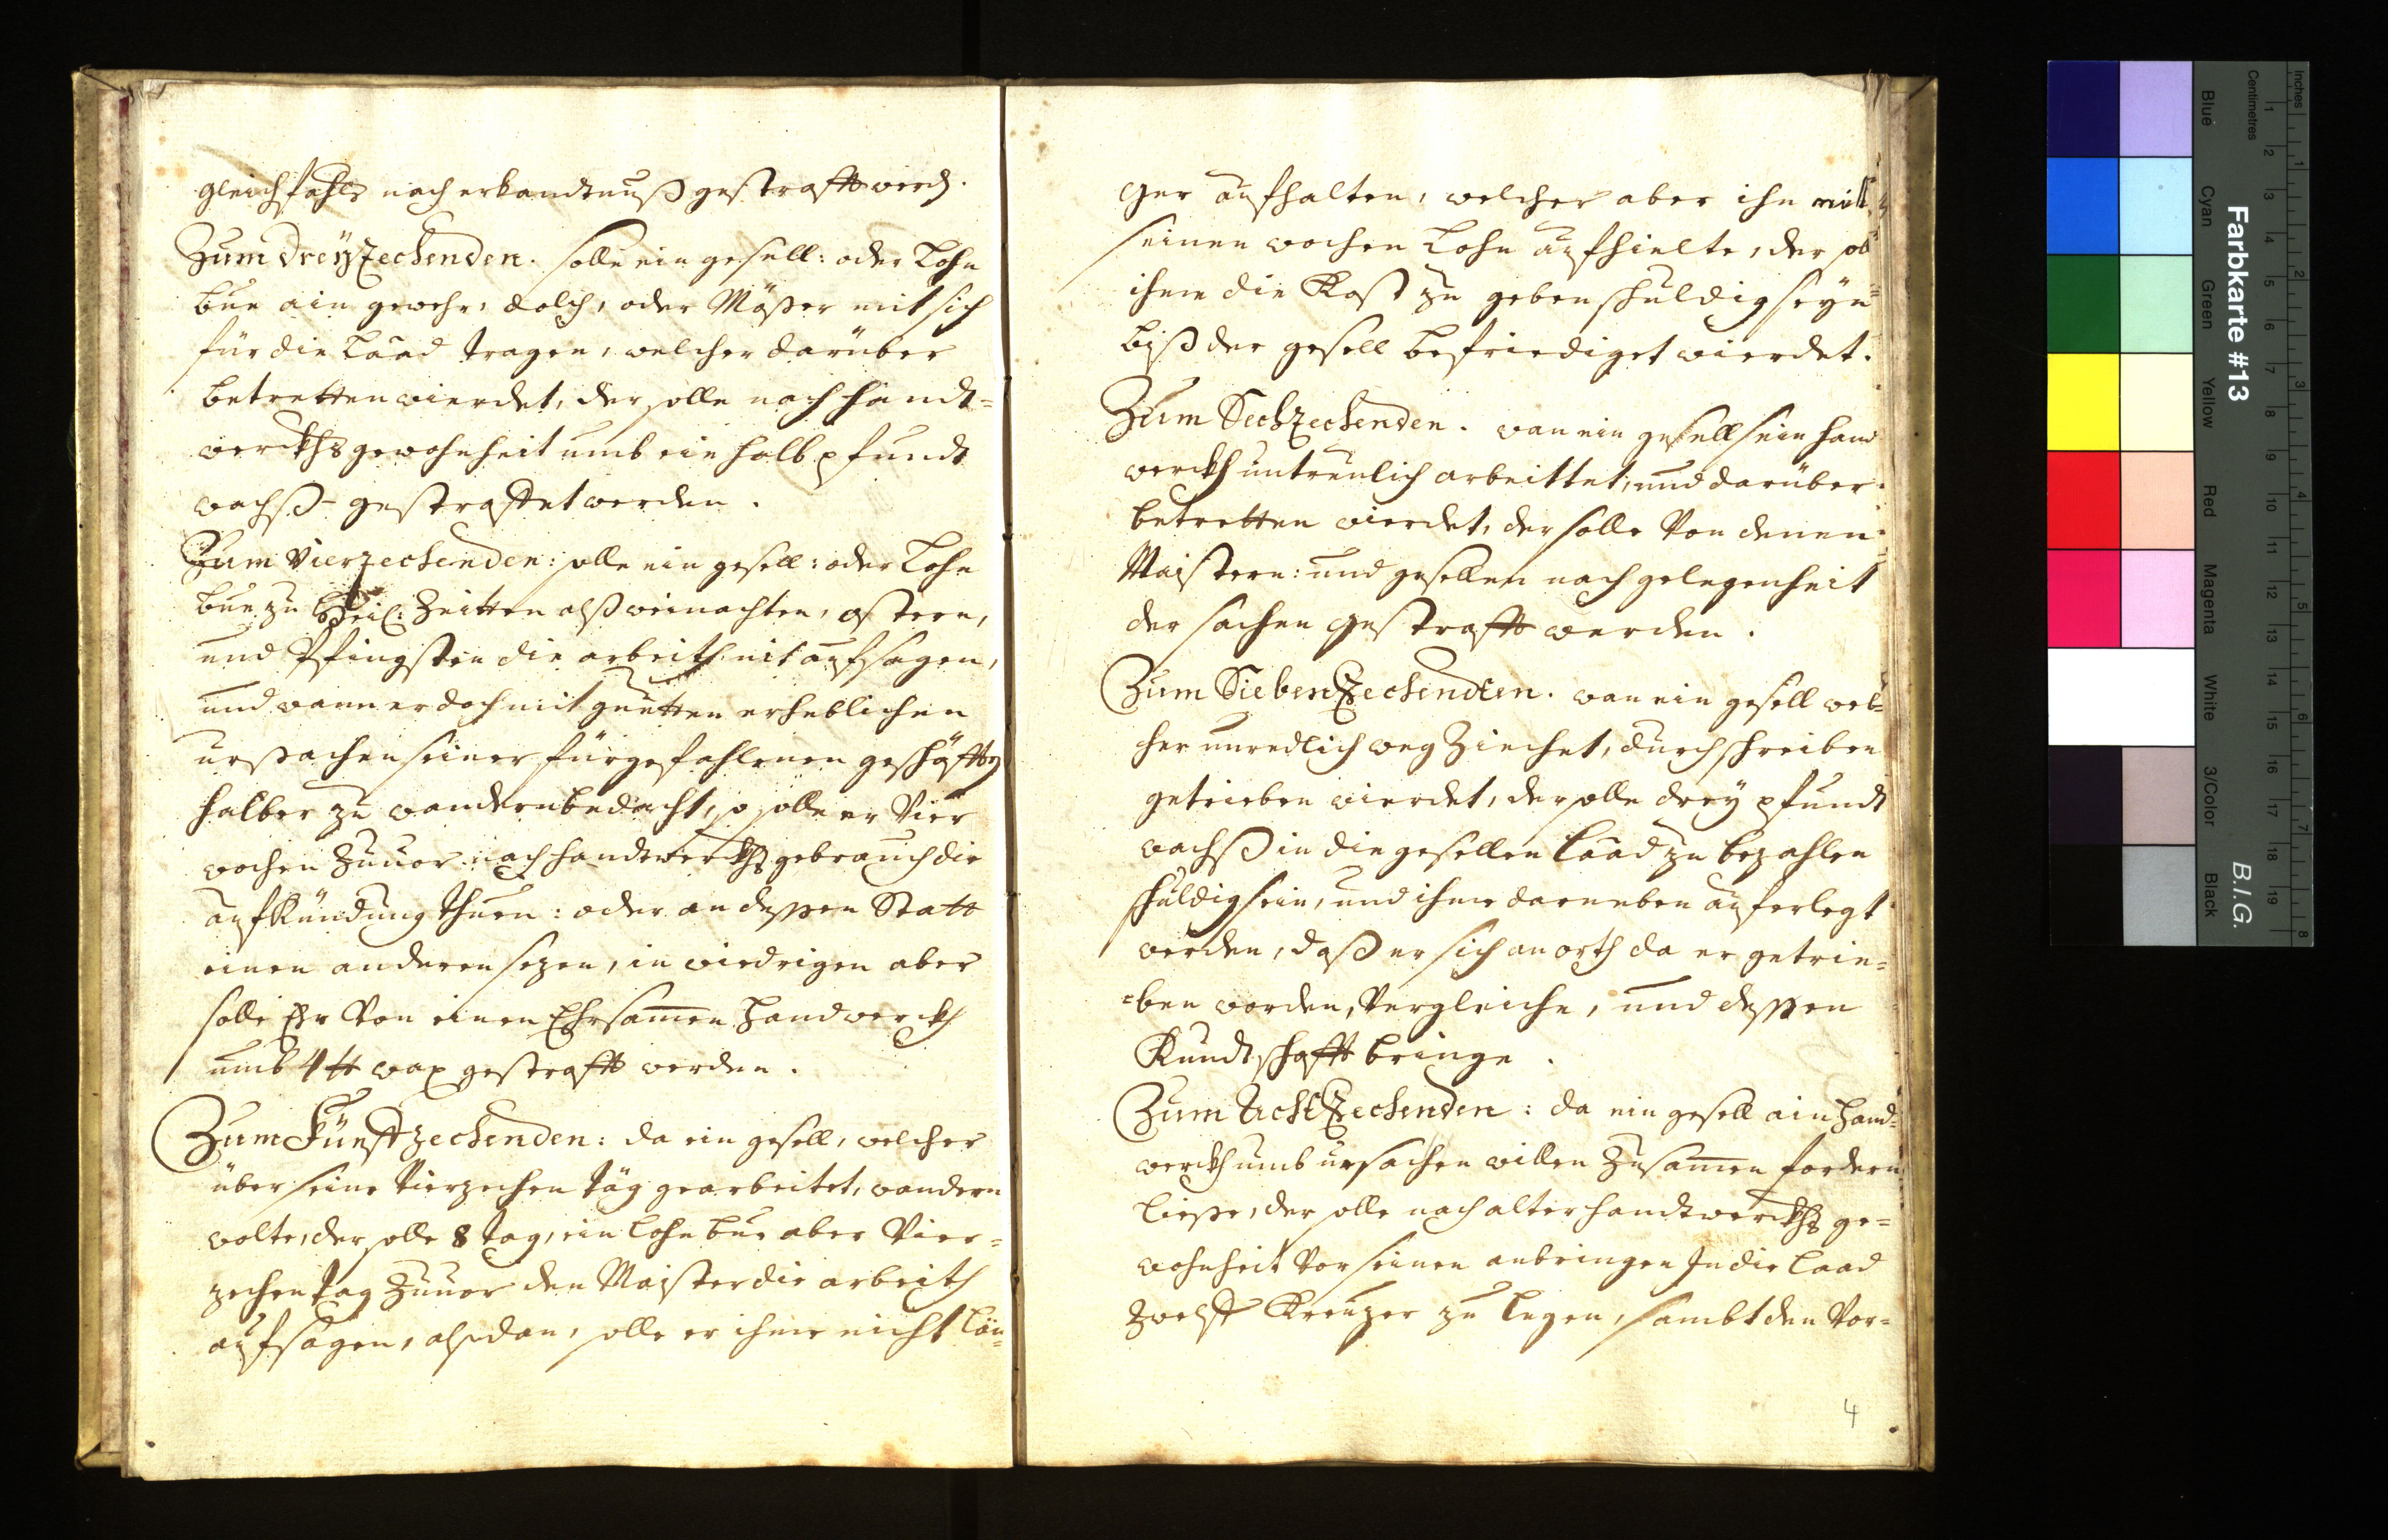 gleichfahls nach erkandtnuß gestrafft werd.
Zum dreyzechenden. solle ein gesell: oder Lohn
bue ain gewehr, dolch, oder Mößer mit sich
für die Laad tragen, welcher darüber
betretten wierdet, der solle nach handt=
werckhs gewohnheit umb ein halb pfundt
wachß gestraffet werden.
Zum Vierzechenden: solle ein gesell: oder Lohn
bue zu heil: Zeitten alß weinachten, ostern,
und Pfingsten die arbeith nit aufsagen,
und wann er doch mit guetten erheblichen
ursachen seiner fürgefahlenen geschäfften
halber zu wandern bedacht, so solle er Vier
wochen Zuuor nach handtwerckhs gebrauch die
aufkündung thuen: oder an dessen Statt
einen anderen sezen, in wiedrigen aber
solle Er Von einen Ehrsamen Handwerckh
umb 4 ℔ wax gestrafft werden.
Zum Fünffzechenden: da ein gesell, welcher
über seine Vierzechen täg gearbeitet, wandern
wolte, der solle 8 tag, ein Lohn bue aber Vier=
zechen tag Zuuor den Maister die arbeith
aufsagen, alßdan, solle er ihme nicht län=
ger aufhalten, welcher aber ihn mitt
seinen wochen Lohn aufhielte, der soll
ihme die Kost zu geben schuldig seyn
biß der gesell befriediget wierdet.
Zum Sechzechenden. wan ein gesell sein hand
werckh untreulich arbeittet, und darüber
betretten wierdet, der solle Von denen
Maistern: und gesellen nach gelegenheit
der sachen gestrafft werden.
Zum Siebenzechenden. wan ein gesell wel=
her unredlich weg Ziechet, durch schreiben
getrieben wierdet, der solle drey pfundt
wachß in die gesellen Laad zu bezahlen
schuldig sein, und ihme darneben auferlegt
werden, daß er sich an orth da er getrie=
=ben worden, Vergleiche, und dessen
Kundtschafft bringe.
Zum Achtzechenden: da ein gesell ain Hand=
werckh umb ursachen willen Zusamen fordern
liesse, der solle nach alter handtwerckhs ge=
wohnheit Vor seinen anbringen In die Laad
Zwelff Kreuzer zu legen, sambt den Vor=
4
Farbkarte #13
B.I.G.
Inches
Centimetres
1 2 3 4 5 6 7 8 9 10 11 12 13 14 15 16 17 18 19
1 2 3 4 5 6 7 8
Blue
Cyan
Green
Yellow
Red
Magenta
White
3/Color
Black